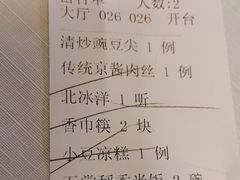 人数:2
大厅 026 026 开台
清炒豌豆尖 1 例
传统京酱肉丝 1 例
北冰洋 1 听
香巾筷 2 块
小豆凉糕 1 例